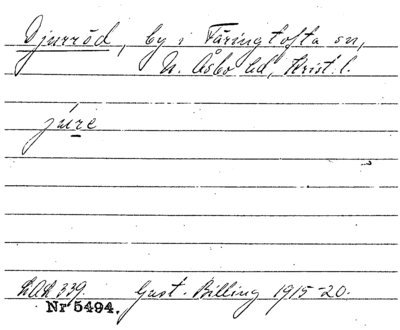 Djurröd, by i Färingtofta sn,
N. Åsbo hd, Krist. l.
júre
LAL 339. Gust. Billing 1915-20.
Nr 5494.